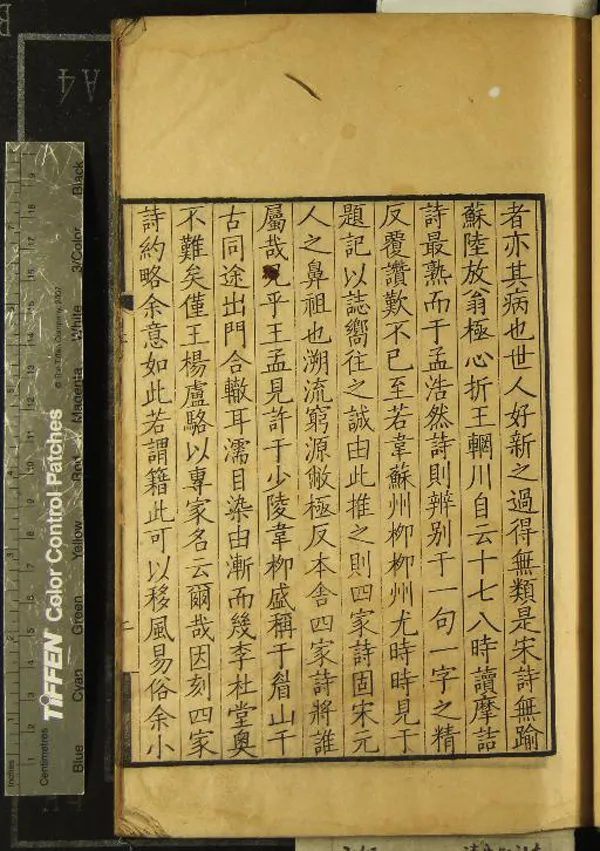 者亦其病也世人好新之過得無類是宋詩無踰
蘇陸放翁極心折王輞川自云十七八時讀摩詰
詩最熟而于孟浩然詩則辨别于一句一字之精
反覆讚歎不已至若韋蘇州柳柳州尤時時見于
題記以誌嚮往之誠由此推之則四家詩固宋元
人之鼻祖也溯流窮源敝極反本舎四家詩將誰
屬哉況乎王孟見許于少陵韋柳盛稱于眉山千
古同途出門合轍耳濡目染由漸而幾李杜堂奥
不難矣僅王楊盧駱以專家名云爾哉因刻四家
詩約略余意如此若謂籍此可以移風易俗余小
二
A4
TIFFEN Color Control Patches
© The Tiffen Company, 2007
Blue Cyan Green Yellow Red Magenta White 3/Color Black
Inches
Centimetres